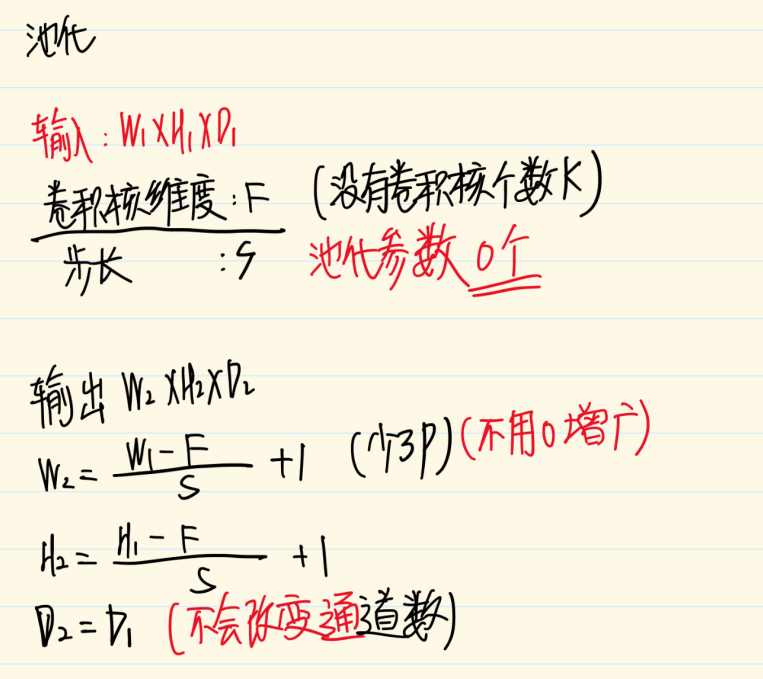 池化
输入：W₁XH₁XD₁
卷积核维度：F （没有卷积核个数K）
步长 ：S 池化参数 0个
输出 W₂XH₂XD₂
W₂= (W₁-F)/S +1 （少了P）（不用0增广）
H₂= (H₁-F)/S +1
D₂=D₁ （不会改变通道数）